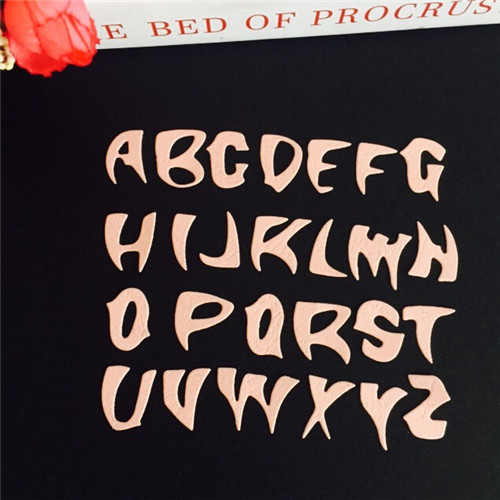 E BED OF PROCRUS
ABCDEFG
HIJKLMN
OPQRST
UVWXYZ